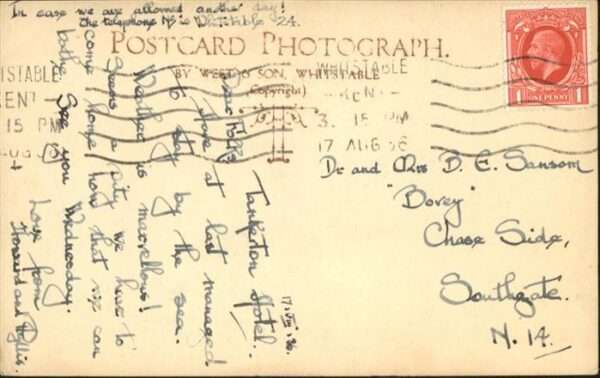 In case we are allowed another day!
The telephone No is Whitstable 24.
POSTCARD PHOTOGRAPH.
BY WEST & SON, WHITSTABLE
(Copyright)
ISTABLE
ENT
15 PM
WHITSTABLE
KENT
3. 15 PM
17 AUG 36
ONE PENNY
1 1
Tankerton Hotel.
17.VIII.36.
Dear Folks,
Have at last managed
to stay by the sea.
Weather is marvellous!
Seems a pity we have to
come home now that we can
bathe. See you Wednesday.
Love from
Howard and Phyllis.
Dr and Mrs B. E. Sansom
"Bovey"
Chase Side,
Southgate.
N. 14.